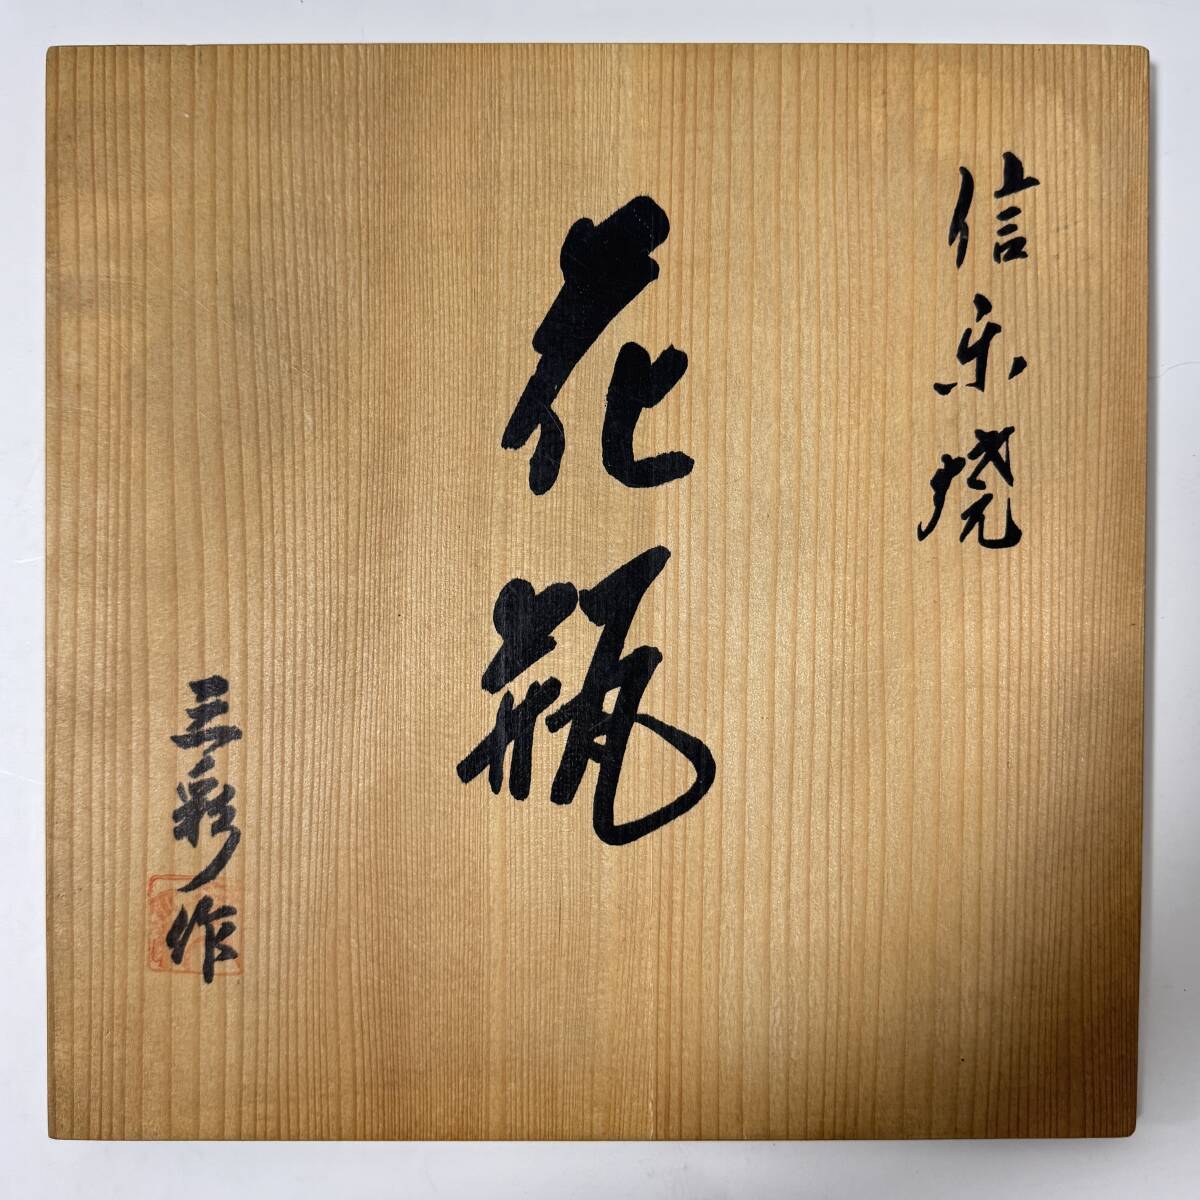 信楽焼
花瓶
三彩作